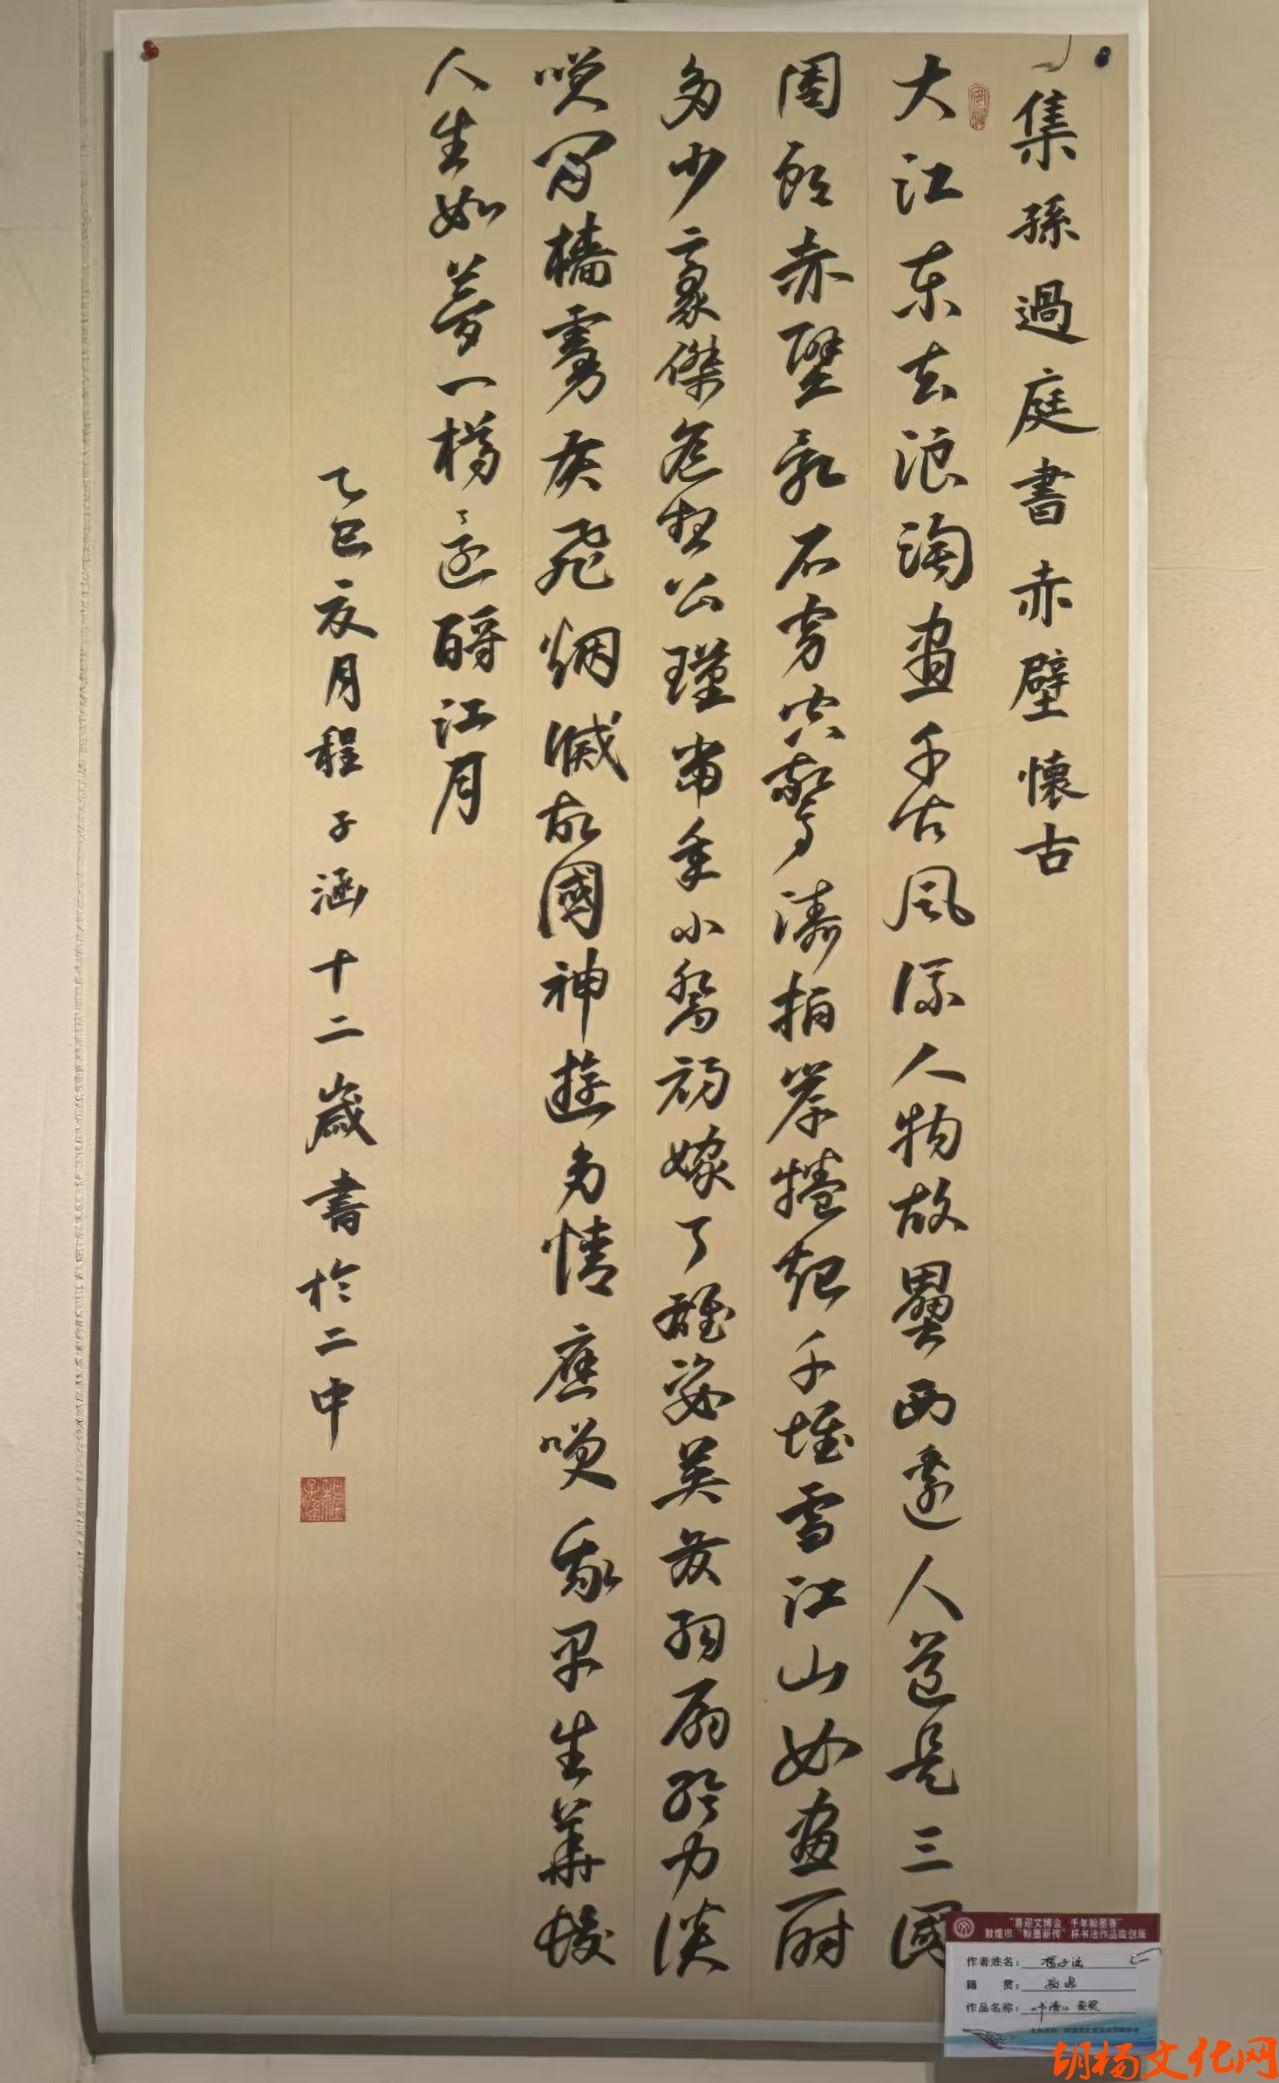 集孫過庭書赤壁懷古
大江东去浪淘盡千古風流人物故壘西邊人道是三國
周郎赤壁亂石穿空驚濤拍岸捲起千堆雪江山如畫一時
多少豪傑遙想公瑾當年小喬初嫁了雄姿英發羽扇綸巾談
笑間檣櫓灰飛烟滅故國神遊多情應笑我早生華髮
人生如夢一樽還酹江月
乙巳夏月程子涵十二歲書於二中
"喜迎文博会 千年翰墨香"
敦煌市"翰墨薪传"杯书法作品临创展
作者姓名：程子涵
籍贯：
作品名称：
胡杨文化网